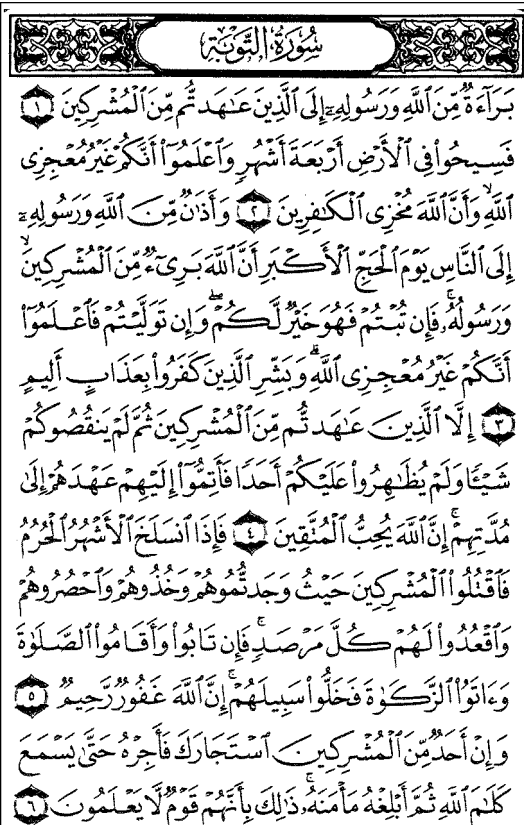 سُورَةُ التَّوْبَةِ
بَرَآءَةٌ مِّنَ ٱللَّهِ وَرَسُولِهِۦٓ إِلَى ٱلَّذِينَ عَـٰهَدتُّم مِّنَ ٱلْمُشْرِكِينَ ١
فَسِيحُوا۟ فِى ٱلْأَرْضِ أَرْبَعَةَ أَشْهُرٍ وَٱعْلَمُوٓا۟ أَنَّكُمْ غَيْرُ مُعْجِزِى
ٱللَّهِ ۙ وَأَنَّ ٱللَّهَ مُخْزِى ٱلْكَـٰفِرِينَ ٢ وَأَذَٰنٌ مِّنَ ٱللَّهِ وَرَسُولِهِۦٓ
إِلَى ٱلنَّاسِ يَوْمَ ٱلْحَجِّ ٱلْأَكْبَرِ أَنَّ ٱللَّهَ بَرِىٓءٌ مِّنَ ٱلْمُشْرِكِينَ ۙ
وَرَسُولُهُۥ ۚ فَإِن تُبْتُمْ فَهُوَ خَيْرٌ لَّكُمْ ۖ وَإِن تَوَلَّيْتُمْ فَٱعْلَمُوٓا۟
أَنَّكُمْ غَيْرُ مُعْجِزِى ٱللَّهِ ۗ وَبَشِّرِ ٱلَّذِينَ كَفَرُوا۟ بِعَذَابٍ أَلِيمٍ
٣ إِلَّا ٱلَّذِينَ عَـٰهَدتُّم مِّنَ ٱلْمُشْرِكِينَ ثُمَّ لَمْ يَنقُصُوكُمْ
شَيْـًٔا وَلَمْ يُظَـٰهِرُوا۟ عَلَيْكُمْ أَحَدًا فَأَتِمُّوٓا۟ إِلَيْهِمْ عَهْدَهُمْ إِلَىٰ
مُدَّتِهِمْ ۚ إِنَّ ٱللَّهَ يُحِبُّ ٱلْمُتَّقِينَ ٤ فَإِذَا ٱنسَلَخَ ٱلْأَشْهُرُ ٱلْحُرُمُ
فَٱقْتُلُوا۟ ٱلْمُشْرِكِينَ حَيْثُ وَجَدتُّمُوهُمْ وَخُذُوهُمْ وَٱحْصُرُوهُمْ
وَٱقْعُدُوا۟ لَهُمْ كُلَّ مَرْصَدٍ ۚ فَإِن تَابُوا۟ وَأَقَامُوا۟ ٱلصَّلَوٰةَ
وَءَاتَوُا۟ ٱلزَّكَوٰةَ فَخَلُّوا۟ سَبِيلَهُمْ ۚ إِنَّ ٱللَّهَ غَفُورٌ رَّحِيمٌ ٥
وَإِنْ أَحَدٌ مِّنَ ٱلْمُشْرِكِينَ ٱسْتَجَارَكَ فَأَجِرْهُ حَتَّىٰ يَسْمَعَ
كَلَـٰمَ ٱللَّهِ ثُمَّ أَبْلِغْهُ مَأْمَنَهُۥ ۚ ذَٰلِكَ بِأَنَّهُمْ قَوْمٌ لَّا يَعْلَمُونَ ٦